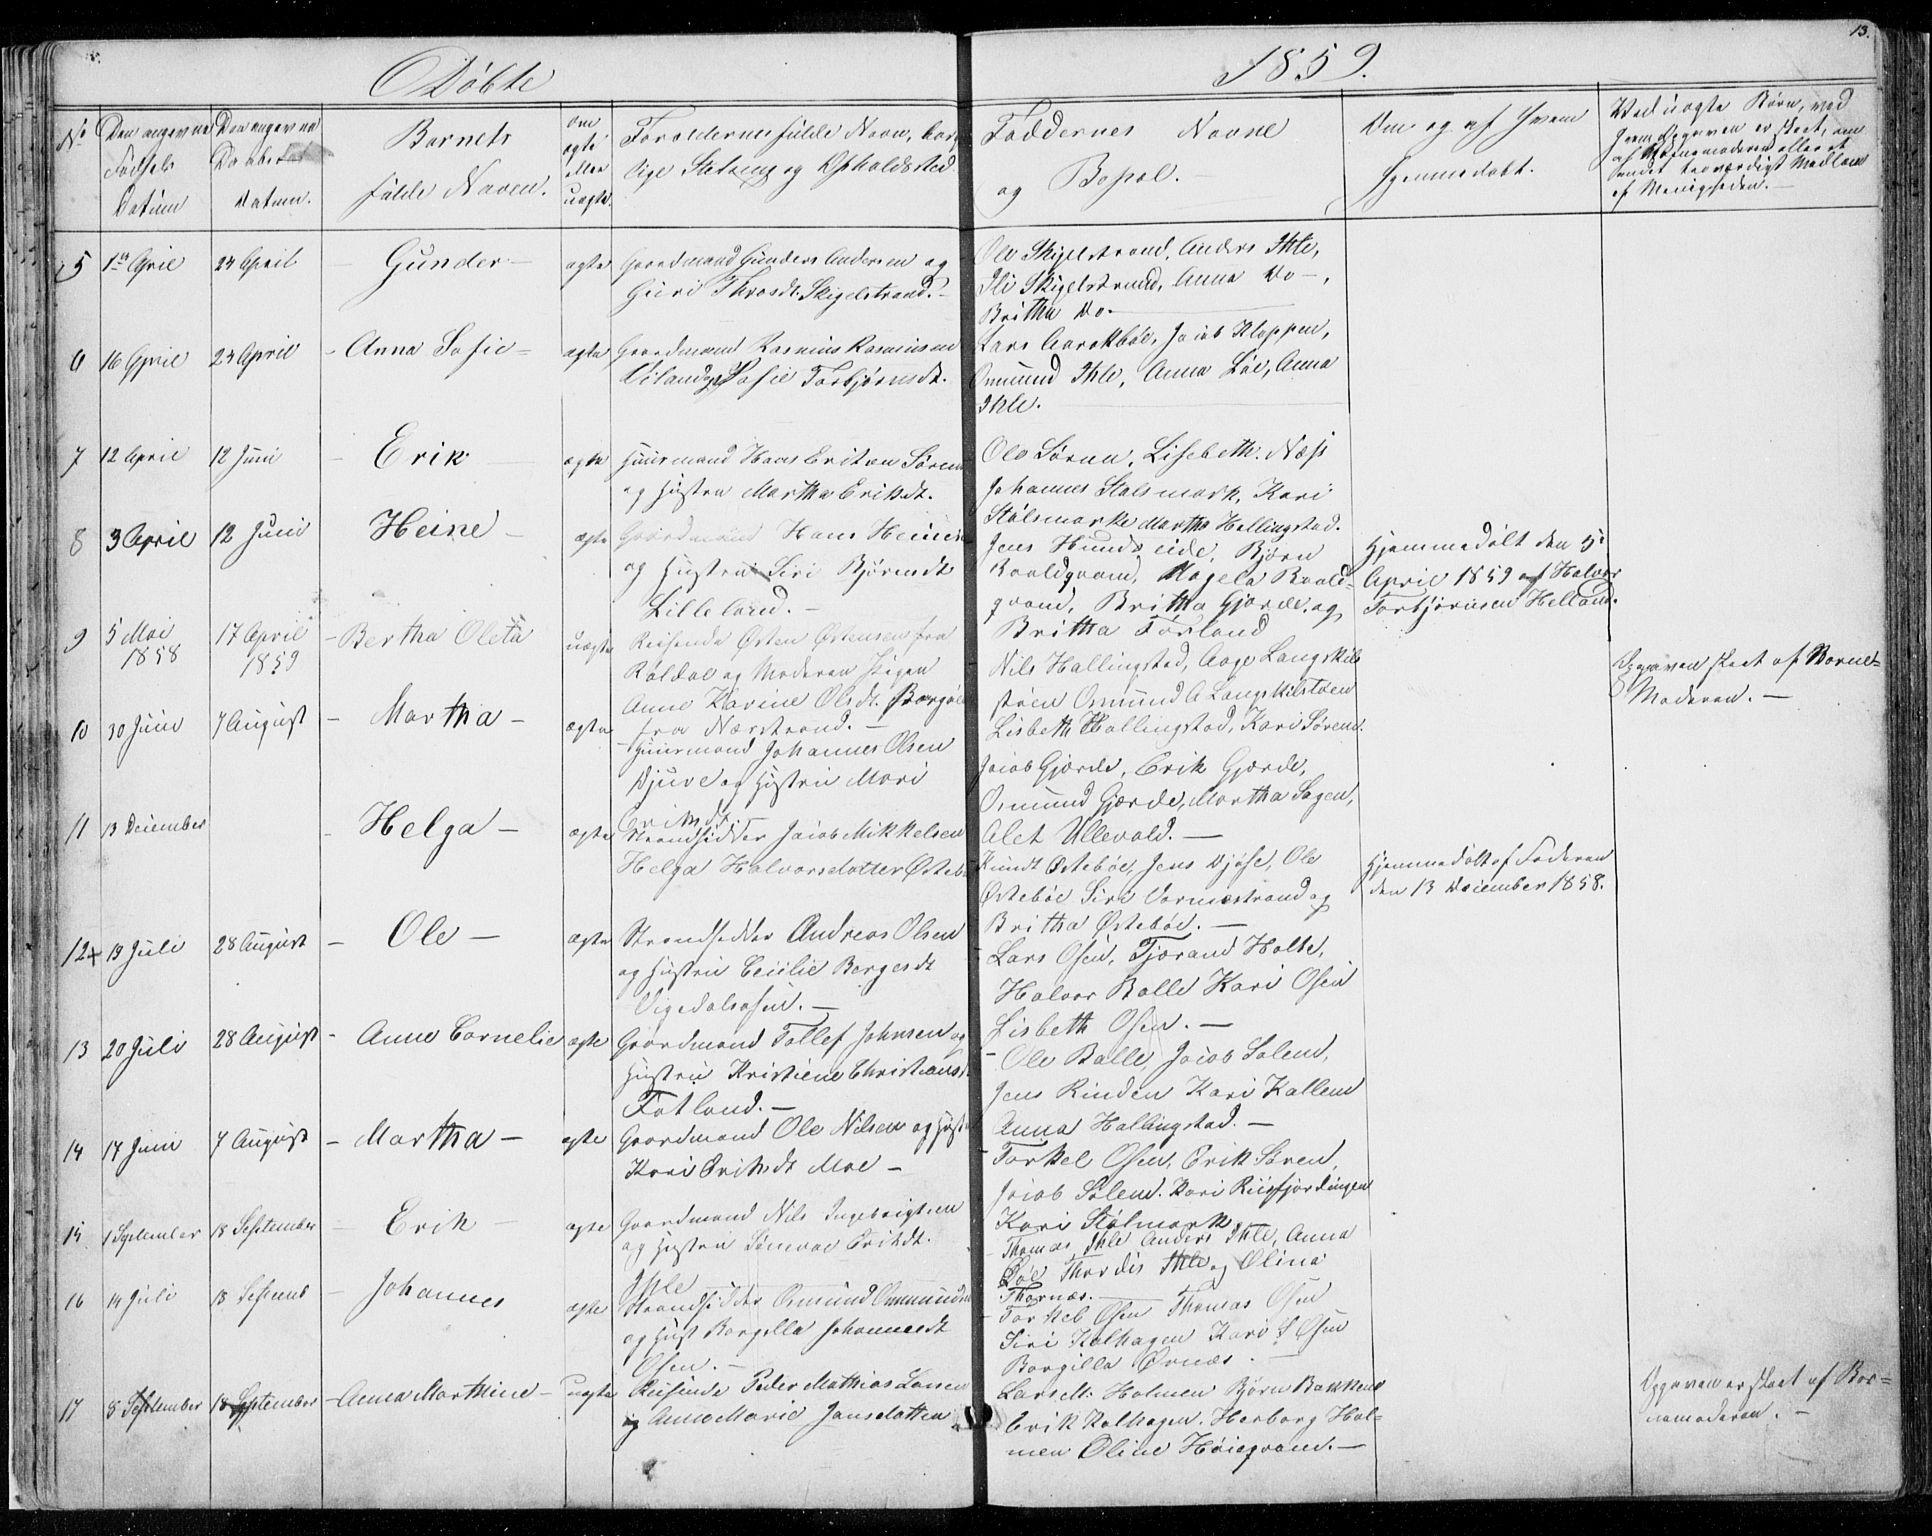 Döbte
1859.
13.
No
Den angivne Födsels Datum
Den angivne Daabs Datum.
Barnets fulde Navn.
om ægte eller uægte.
Forældrenes fulde Navn, borgerlige Stilling og Opholdssted
Faddernes Navne og Bopæl. -
Om og af Hvem hjemmedöbt.
Ved uægte Börn, ved hvem Opgaven er skeet, om af Barnemoderen eller et andet troværdigt Medlem af Menigheden. -
5 1ste April 24 April - Gunder - ægte Gaardmand Gunder Andersen og
Guri Thoresdt. Skigelstrand. -
Ole Skigelstrand, Anders Ihle,
Skigelstrand, Anna Do -,
Britha Do. -
6 16 April 24 April - Anna Sofie - ægte Gaardmand Rasmus Rasmussen
Sofie Torbjörnsdt.
Lars Jacob Kloppen,
Omund Ihle, Anna Löe, Anna
Ihle.
7 12 April 12 Juni - Erik - ægte Huusmand Hans Eriksen Sörem
og Hustru Martha Eriksdt.
Ole Sörem, Lisebeth Næss
Johannes Stölsmark, Kari
Stölsmark Martha Hallingstad.
8 3 April 12 Juni Heine - ægte Gaardmand Hans Heinesen
og Hustru Siri Björnsdt
Lilleland. -
Jens Hundseide, Björn
Hagela
Britha Gjærde, og
Britha Förland
Hjemmedöbt den 5
April 1859 af Halvor
Torbjörnsen Helland.
9 5 Mai 1858 17 April 1859 - Bertha Oleta uægte Reisende Östen Östensen fra
Röldal og Moderen Pigen
Anne Karine Olsdt.
fra Nærstrand. -
Nils Hallingstad, Aage Langskil
Omund A Langskilstöen
Lisbeth Hallingstad, Kari Sörem.
Opgaven skeet af Barne-
Moderen. -
10 30 Juni 7 August - Martha - ægte Huusmand Johannes Olsen
Djuve og Hustru Mari
Eriksdt
Jacob Gjærde, Erik Gjærde,
Omund Gjærde, Martha Sagen,
Alet Ullevold. -
11 13 December - Helga - ægte Strandsidder Jacob Mikkelsen
Helga Halvorsdatter Östeböe
Knudt Östeböe, Jens Djöse, Ole
Östeböe Siri Varmestrand og
Britha Östeböe. -
Hjemmedöbt af Faderen
den 13 December 1858.
12+ 19 Juli 28 August - Ole - ægte Strandsidder Andreas Olsen
og Hustru Cecilie Börgesdt
Vigedalsosen. -
Lars Osen, Tjærand Holte,
Halvor Balle Kari Osen
Lisbeth Osen. -
13 20 Juli 28 August - Anne Cornelie ægte Gaardmand Tollef Johnsen og
Hustru Kristiene Christiansdt
Fatland. -
Ole Balle, Jacob Solem,
Jens Rinden Kari Kallem
Anna Hallingstad. -
14 17 Juni 7 August - Martha - ægte Gaardmand Ole Nilsen og Hustru
Kari Eriksdt Moe -
Torkel Osen, Erik Sörem,
Jacob Solem. Kari Riisfjordingen
Kari Stölmark.
15 1 September 18 September - Erik - ægte Gaardmand Nils Ingebrigtsen
og Hustru Eriksdt.
Ihle
Thomas Ihle Anders Ihle, Anna
Löe Thordis Ihle og Olina
Thornæs. -
16 14 Juli 18 Septemb - Johannes ægte Strandsidder Omund Ommundsen
og Hust Borgilla Johannesdt
Osen. -
Torkel Osen Thomas Osen
Siri Kalhagen Kari S Osen
Borgilla Örnæs. -
17 8 September 18 September - Anna Marthine - uægte Reisende Peder Mathias Larsen
og Anne Marie Jansdatter
Lars M. Holmen Björn Bakken
Erik Kalhagen. Herborg Hol-
men Oline Höiegrand. -
Opgaven er skeet af Bar-
nemoderen. -